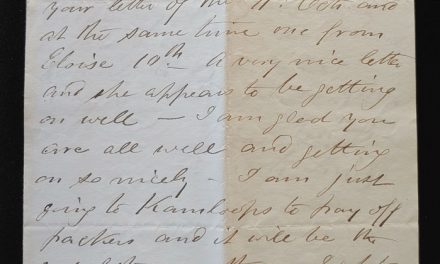 your letter of the 11th Oct and
at the same time one from
Eloise 10th – a very nice letter
and she appears to be getting
on well – I am glad you
are all well and getting
on so nicely – I am just
going to Kamloops to pay off
packers and it will be the